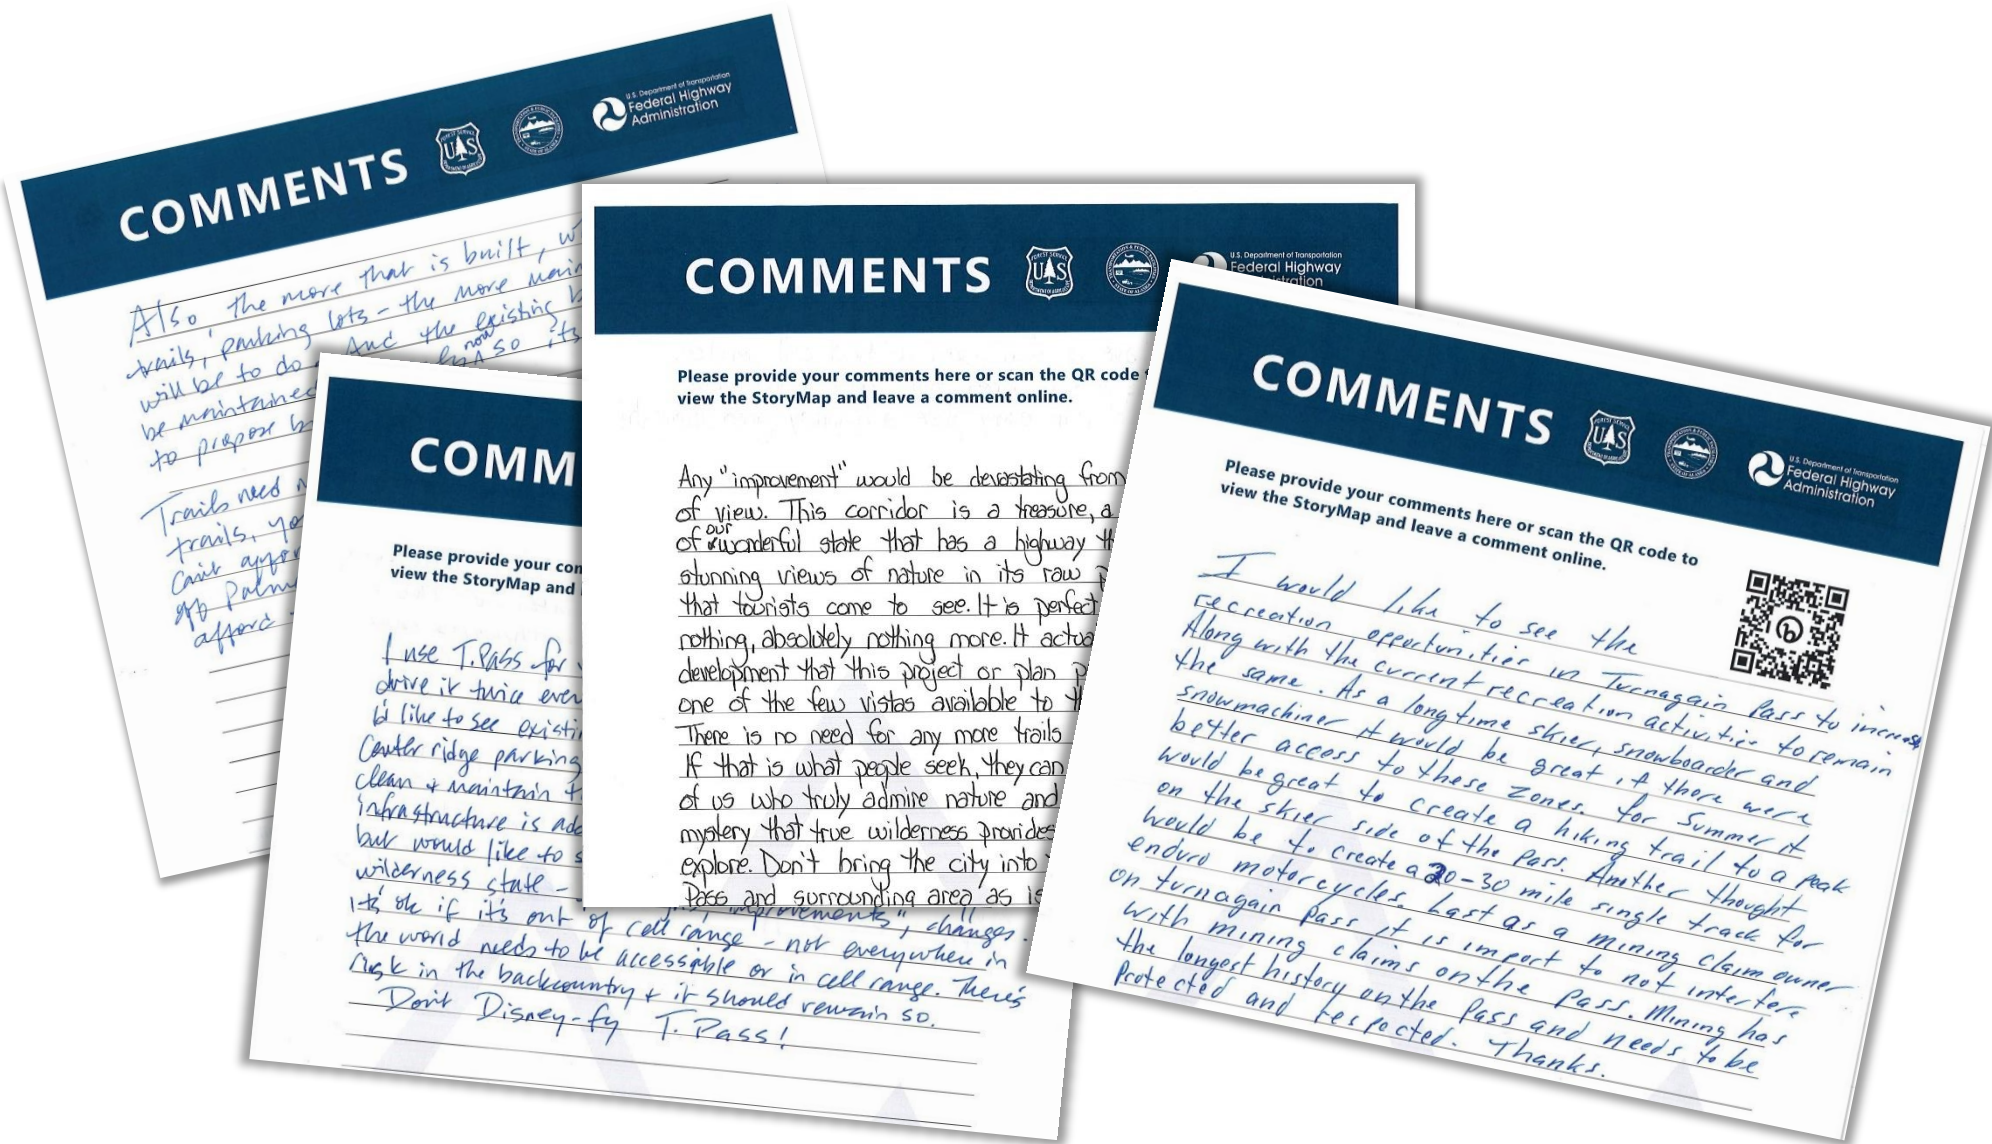 COMMENTS
FOREST SERVICE
UAS
DEPARTMENT OF AGRICULTURE
U.S. Department of Transportation
Federal Highway
Administration
Also, the more that is built, w
trails, parking lots - the more main
will be to do. And the existing b
be maintained now so its
to propose b
Trails need n
trails, yo
can't affor
Palm
afford
COMM
Please provide your com
view the StoryMap and
I use T. Pass for
drive it twice ever
I'd like to see existi
Center ridge parking
clean + maintain t
infrastructure is add
but would like to s
wilderness state -
"improvements", changes.
It's ok if it's out of cell range - not everywhere in
the world needs to be accessible or in cell range. There's
risk in the backcountry & it should remain so.
Don't Disney-fy T. Pass!
COMMENTS
FOREST SERVICE
UAS
DEPARTMENT OF AGRICULTURE
U.S. Department of Transportation
Federal Highway
stration
Please provide your comments here or scan the QR code
view the StoryMap and leave a comment online.
Any "improvement" would be devastating from
of view. This corridor is a treasure, a
of our wonderful state that has a highway th
stunning views of nature in its raw
that tourists come to see. It is perfect
nothing, absolutely nothing more. It actua
development that this project or plan p
one of the few vistas available to th
There is no need for any more trails
If that is what people seek, they can
of us who truly admire nature and
mystery that true wilderness provides
explore. Don't bring the city into
Pass and surrounding area as is
COMMENTS
FOREST SERVICE
UAS
DEPARTMENT OF AGRICULTURE
U.S. Department of Transportation
Federal Highway
Administration
Please provide your comments here or scan the QR code to
view the StoryMap and leave a comment online.
I would like to see the
recreation opportunities in Turnagain Pass to increase
Along with the current recreation activities to remain
the same. As a longtime skier, snowboarder and
snowmachiner it would be great if there were
better access to these zones. For summer it
would be great to create a hiking trail to a peak
on the skier side of the pass. Another thought
would be to create a 20-30 mile single track for
enduro motorcycles. Last as a mining claim owner
on turnagain pass it is import to not interfere
with mining claims on the pass. Mining has
the longest history on the pass and needs to be
protected and respected. Thanks.